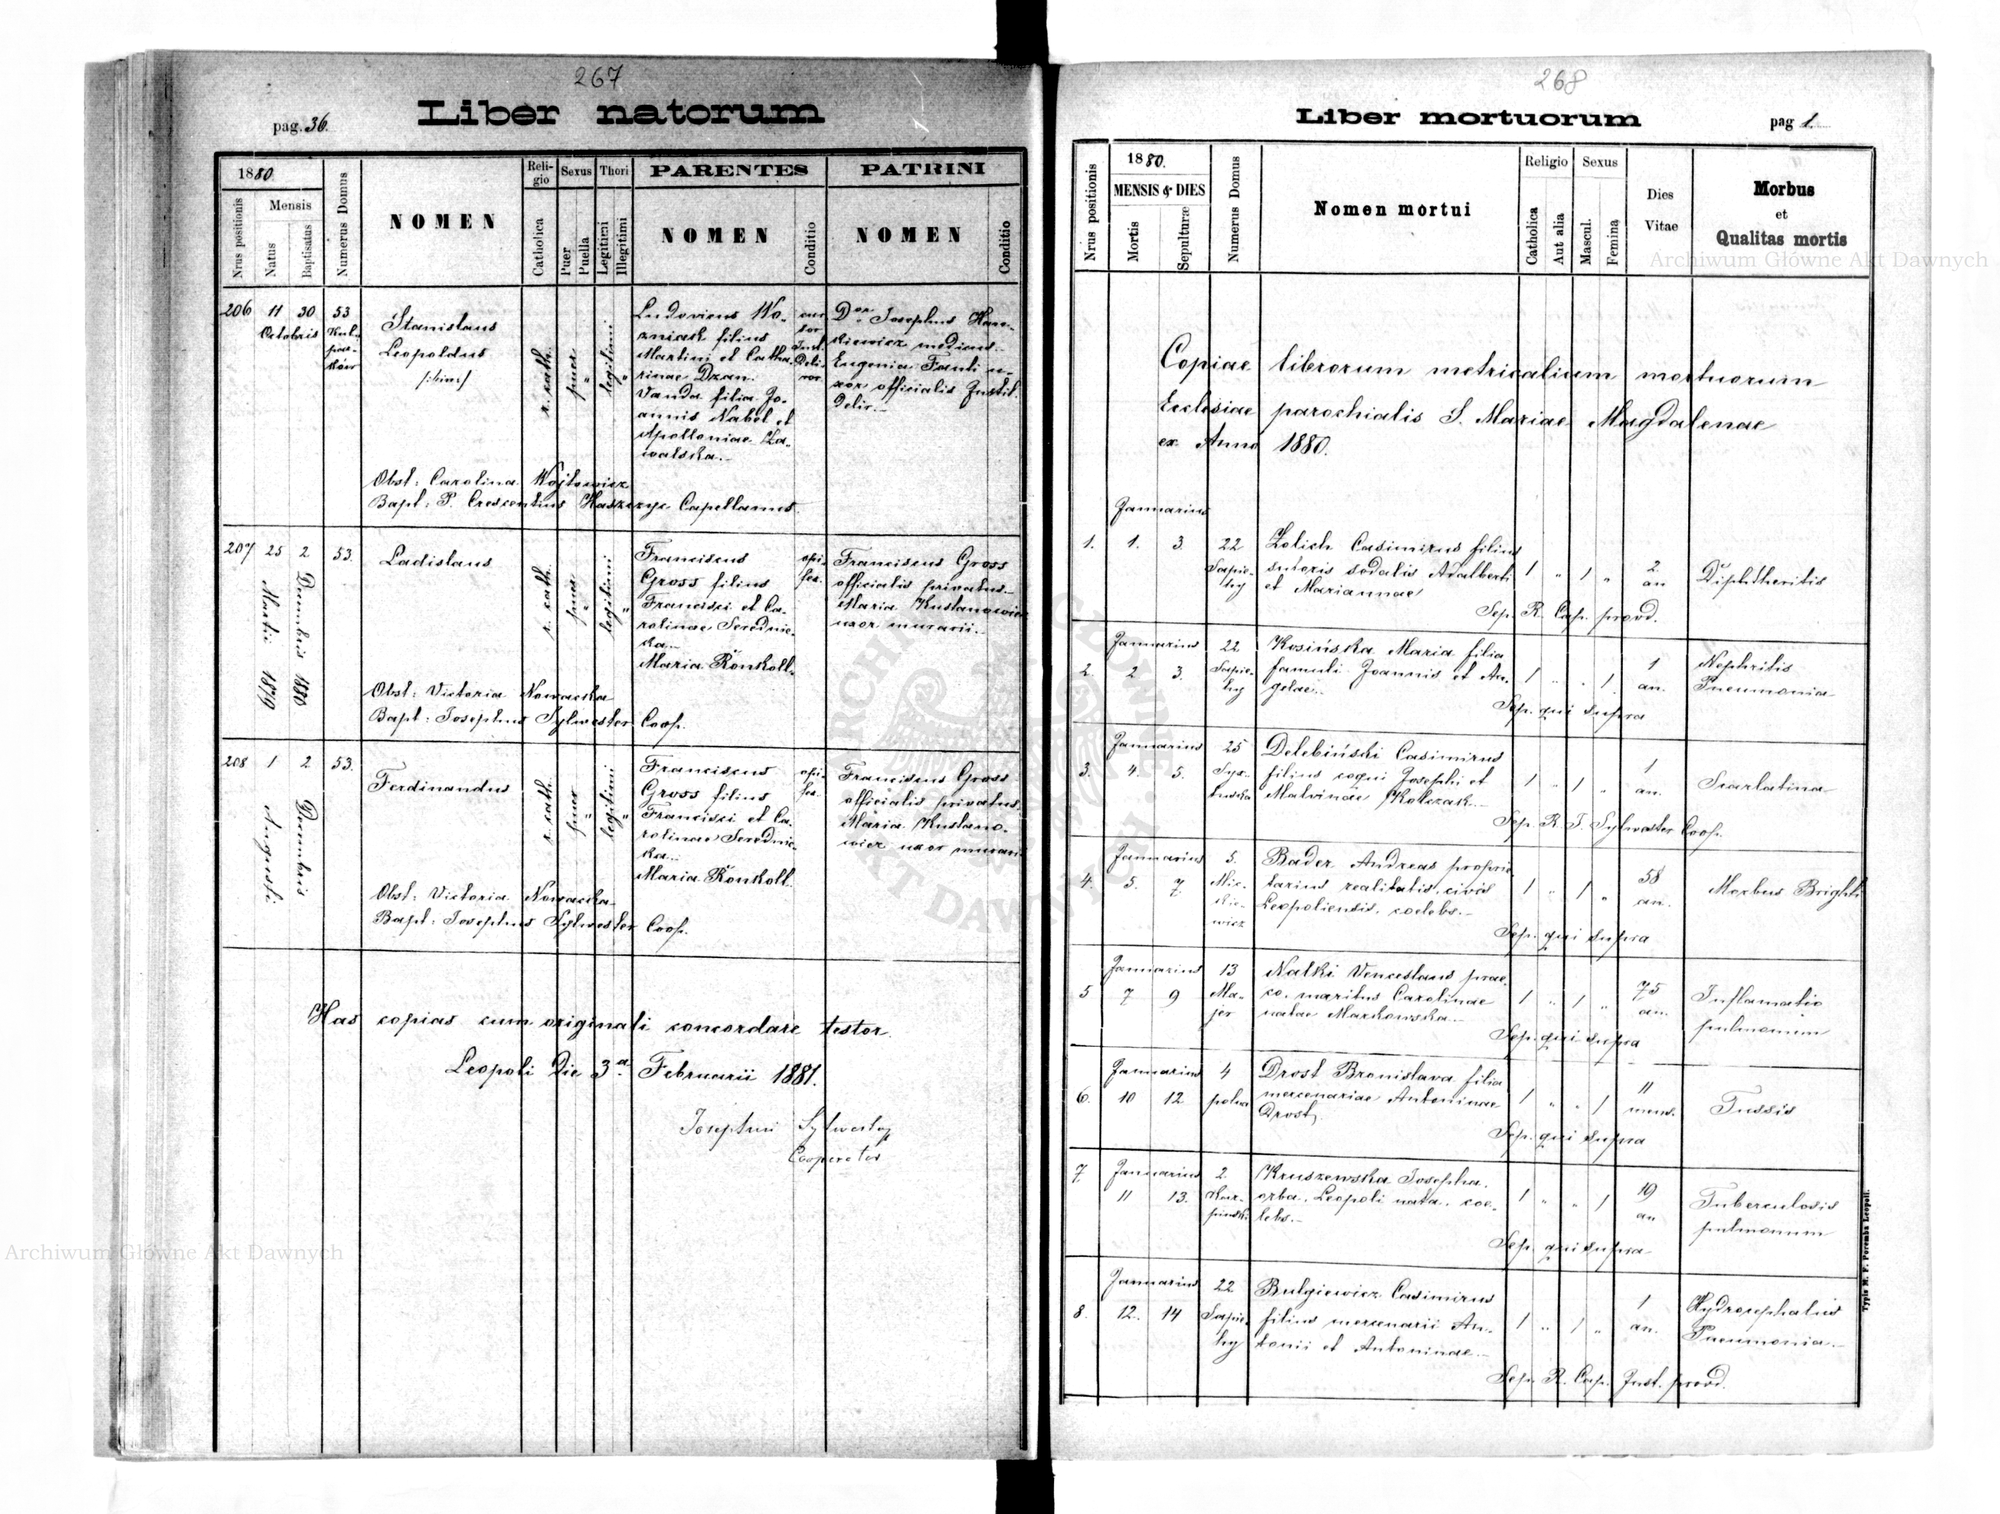 267
pag. 36.
Liber natorum
1880.
Nrus positionis
Mensis
Natus
Baptisatus
Numerus Domus
NOMEN
Religio
Catholica
Sexus
Puer
Puella
Thori
Legitimi
Illegitimi
PARENTES
NOMEN
Conditio
PATRINI
NOMEN
Conditio
206
11 30
Octobris
53
Kul-
par-
ków
Stanislaus
Leopoldus
r. cath.
puer
"
legitimi
"
Ludovicus Wo-
zniack filius
Martini et Catha-
rinae Dzan.
Vanda filia Jo-
annis Nabel et
Apolloniae Za-
walska.-
Inst.
Deli-
ror.
Josephus
medicus
Eugenia Fanti u-
xor officialis Instit.
Delir.-
Obst: Carolina Wojtowicz
Bapt: P. Crescentius Haszczyc Capellanus.
207
25 2
Martii 1879
Decembris 1880
53.
Ladislaus
r. cath.
puer
"
legitimi
"
Franciscus
Gross filius
Francisci et Ca-
rolinae Serednic-
ka.-
Maria Ronkoll.
opi-
fex.
Franciscus Gross
officialis privatus.-
Maria Kustanowicz
uxor murarii.-
Obst: Victoria Nowacka
Bapt: Josephus Sylwester Coop.
208
1 2
Augusti
Decembris
53.
Ferdinandus
r. cath.
puer
"
legitimi
"
Franciscus
Gross filius
Francisci et Ca-
rolinae Serednic-
ka.-
Maria Ronkoll.
opi-
fex.
Franciscus Gross
officialis privatus.
Maria Kustano-
wicz uxor murarii
Obst: Victoria Nowacka
Bapt: Josephus Sylwester Coop.
Has copias cum originali concordare testor.
Leopoli Die 3a Februarii 1881.
Josephus Sylwester
Cooperator
268
Liber mortuorum
pag 1.
Nrus positionis
1880.
MENSIS & DIES
Mortis
Sepulturæ
Numerus Domus
Nomen mortui
Religio
Catholica
Aut alia
Sexus
Mascul.
Femina
Dies
Vitae
Morbus
et
Qualitas mortis
Copiae librorum metricalium mortuorum
Ecclesiae parochialis S. Mariae Magdalenae
ex Anno 1880.
Januarius
1. 1. 3. 22
Sapie-
hy
Zolich Casimirus filius
sutoris sodalis Adalberti
et Mariannae
1 " 1 "
2
an
Diphtheritis
Sep. R. Cap. provd.
Januarius
2. 2 3. 22
Sapie-
hy
Kosińska Maria filia
famuli Joannis et An-
gelae.-
1 " " 1
1
an.
Nephritis
Pneumonia-
Sep. qui supra
Januarius
3. 4. 5. 25
Syx-
tuska
Delebiński Casimirus
filius coqui Josephi et
Malvinae Kolczak.-
1 " 1 "
1
an.
Scarlatina-
Sep. R. J. Sylwester Coop.
Januarius
4. 5. 7 5.
Mic-
kie-
wicz
Bader Andreas proprie-
tarius realitatis, civis
Leopoliensis, coelebs.-
1 " 1 "
58
an.
Morbus Brighti
Sep. qui supra
Januarius
5 7 9 13
Ma-
jer
Natki Venceslaus prae-
co, maritus Carolinae
natae Markowska.-
1 " 1 "
75
an.
Inflamatio
pulmonum
Sep. qui supra
Januarius
6. 10 12 4
pelna
Drost Bronislava filia
mercenariae Antoninae
Drost,
1 " " 1
11
mens.
Tussis
Sep. qui supra
7 Januarius
11 13. 2
Kar-
pinski
Kruszewska Josepha,
orba, Leopoli nata, coe-
lebs.-
1 " " 1
19
an
Tuberculosis
pulmonum
Sep. qui supra
Januarius
8. 12. 14 22
Sapie-
hy
Bulgiewicz Casimirus
filius mercenarii An-
tonii et Antoninae.-
1 " 1 "
1
an.
Hydrocephalus
Pneumonia.-
Sep. R. Cap. Inst. provd.
Typis M. F. Poremba Leopoli.
Archiwum Główne Akt Dawnych
Archiwum Główne Akt Dawnych
ARCHIWUM GŁÓWNE AKT DAWNYCH